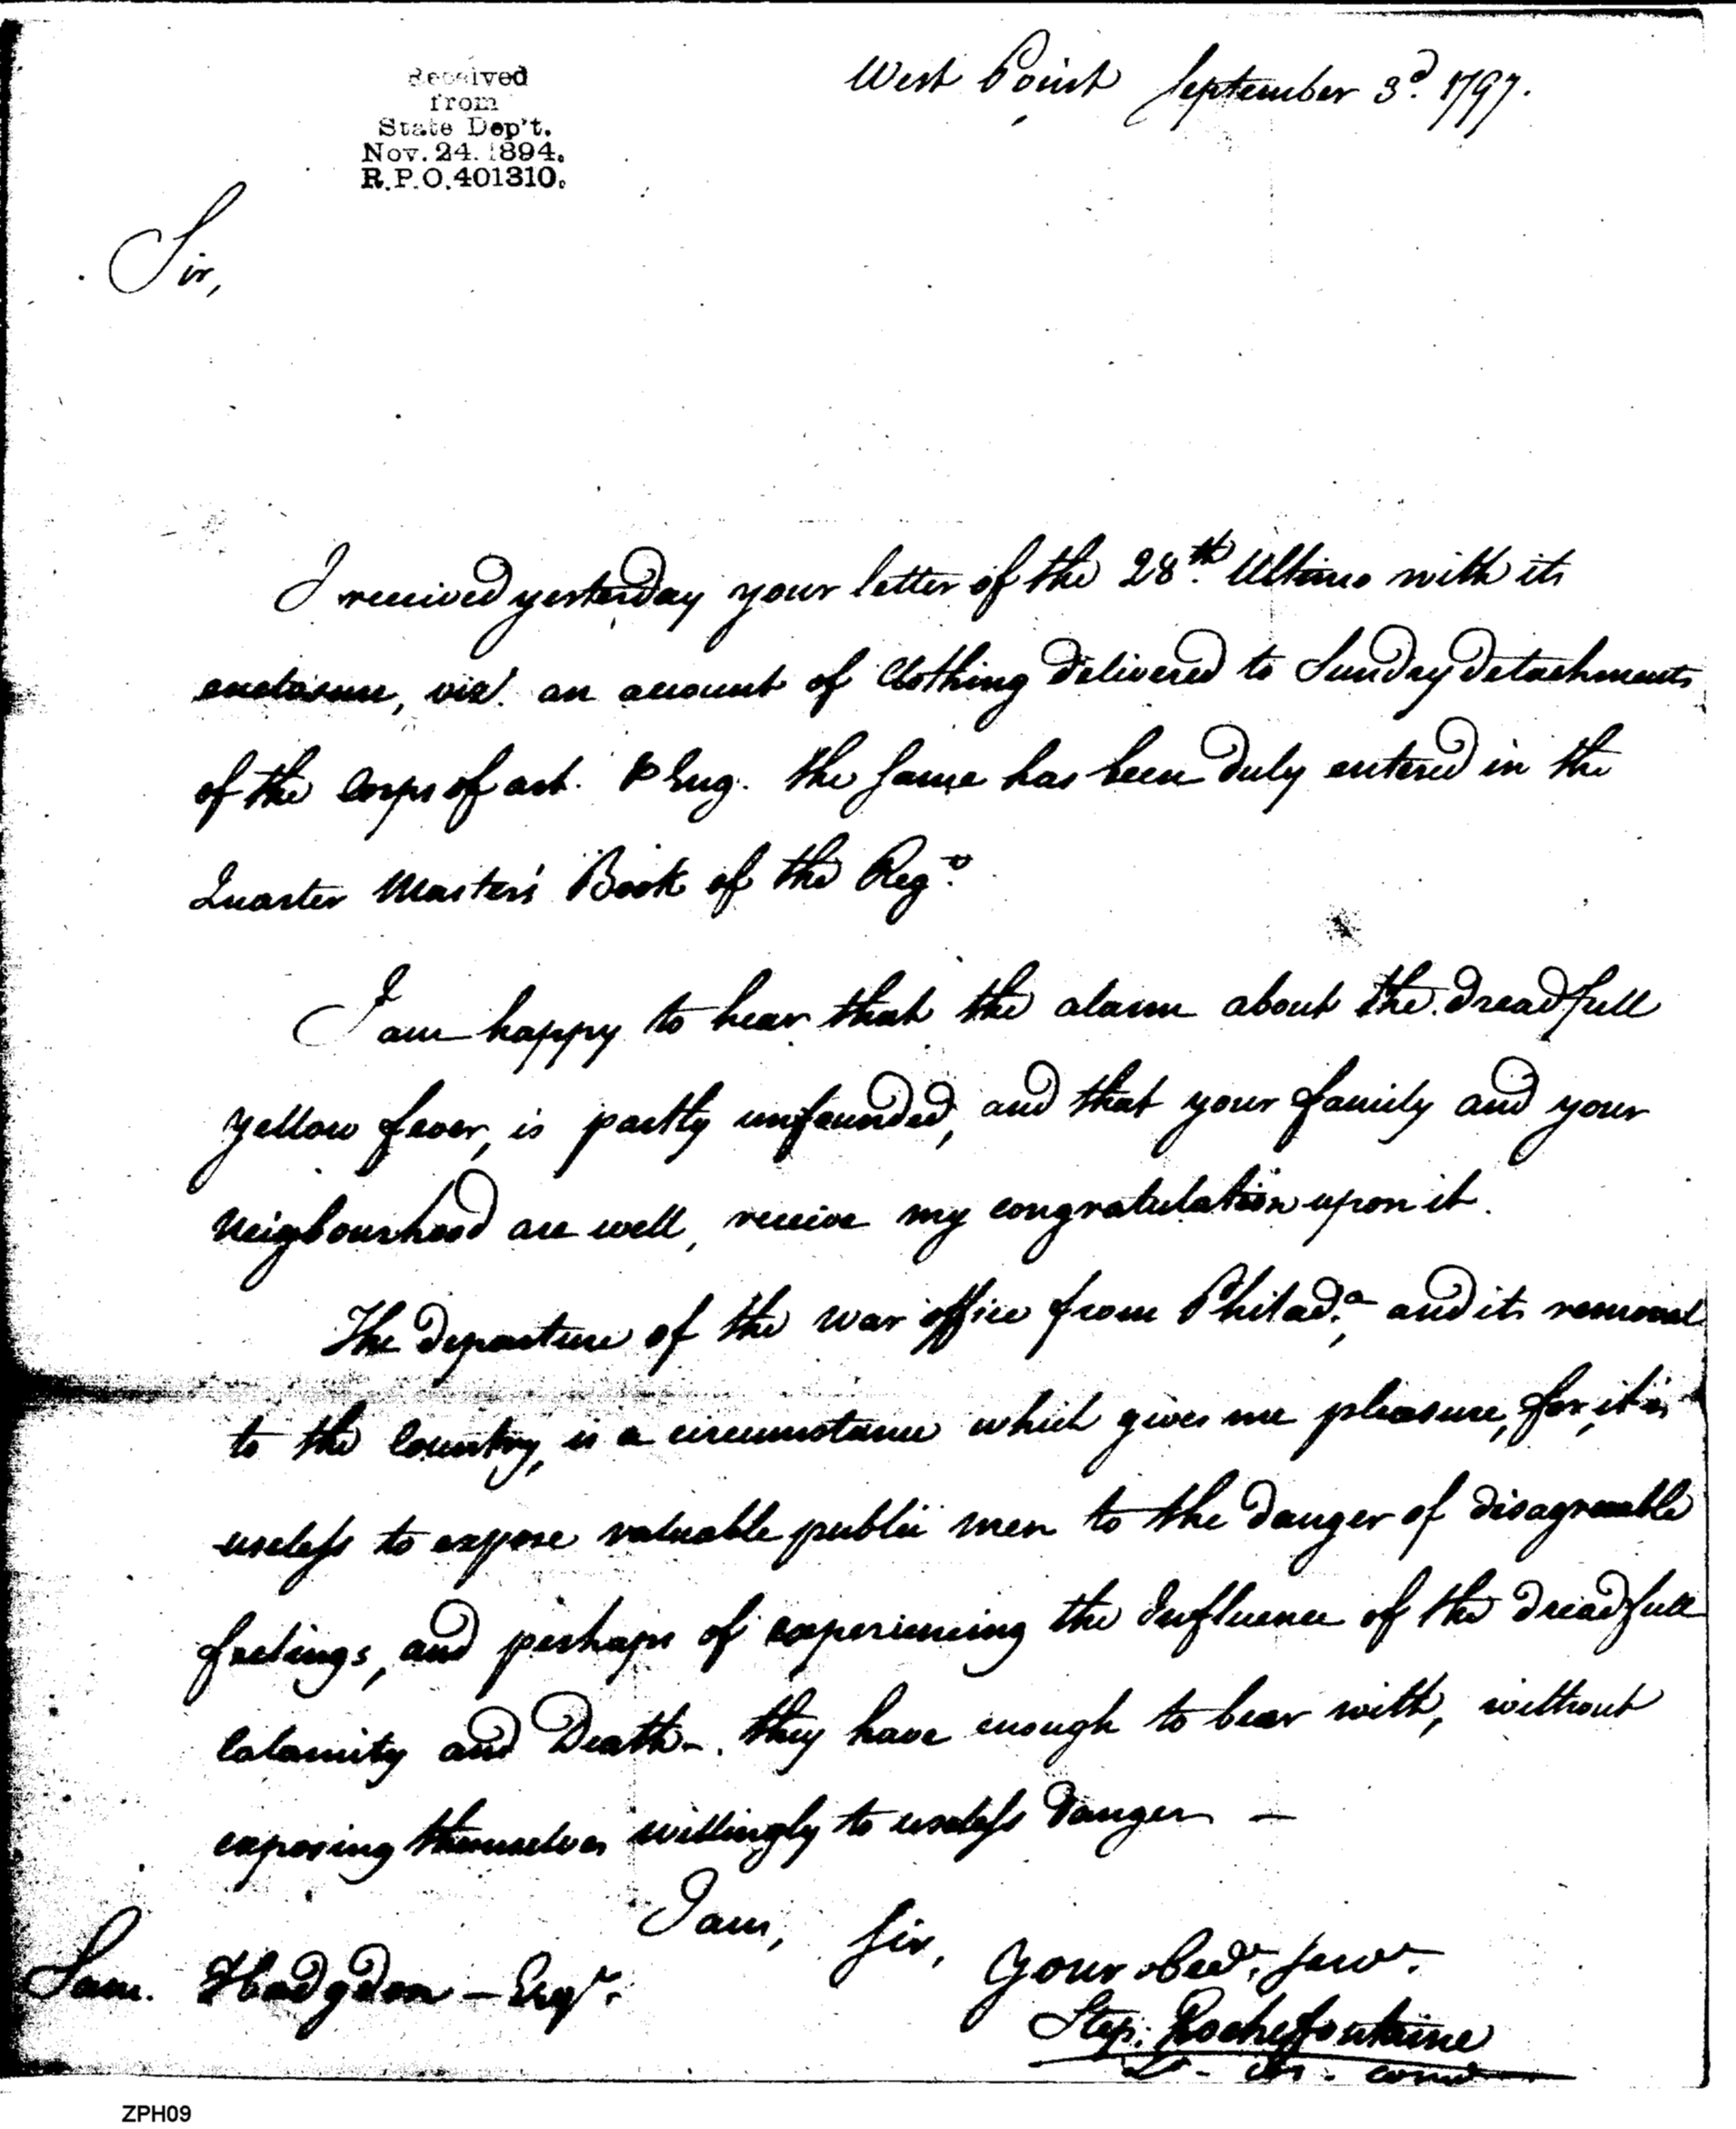 Received
from
State Dep't.
Nov. 24. 1894.
R.P.O. 401310.
West Point September 3d. 1797.
Sir,
I received yesterday your letter of the 28th. Ultimo with its
enclosure, viz. an account of Clothing delivered to Sundry detachments
of the Corps of art. & Eng. the Same has been duly entered in the
Quarter Master's Book of the Regt.
I am happy to hear that the alarm about the dreadfull
yellow fever, is partly unfounded, and that your family and your
Neigbourhood are well, receive my congratulation upon it.
The departure of the war office from Philada., and its removal
to the Country, is a circumstance which gives me pleasure, for, it is
useless to expose valuable public men to the danger of disagreeable
feelings, and perhaps of experiencing the Influence of the dreadfull
Calamity and Death -. they have enough to bear with, without
exposing themselves willingly to useless danger —
I am, Sir,
your obedt. servt.
Sam. Hodgdon — Esqr.
Step. Rochefontaine
Lt. Col. comdt
ZPH09